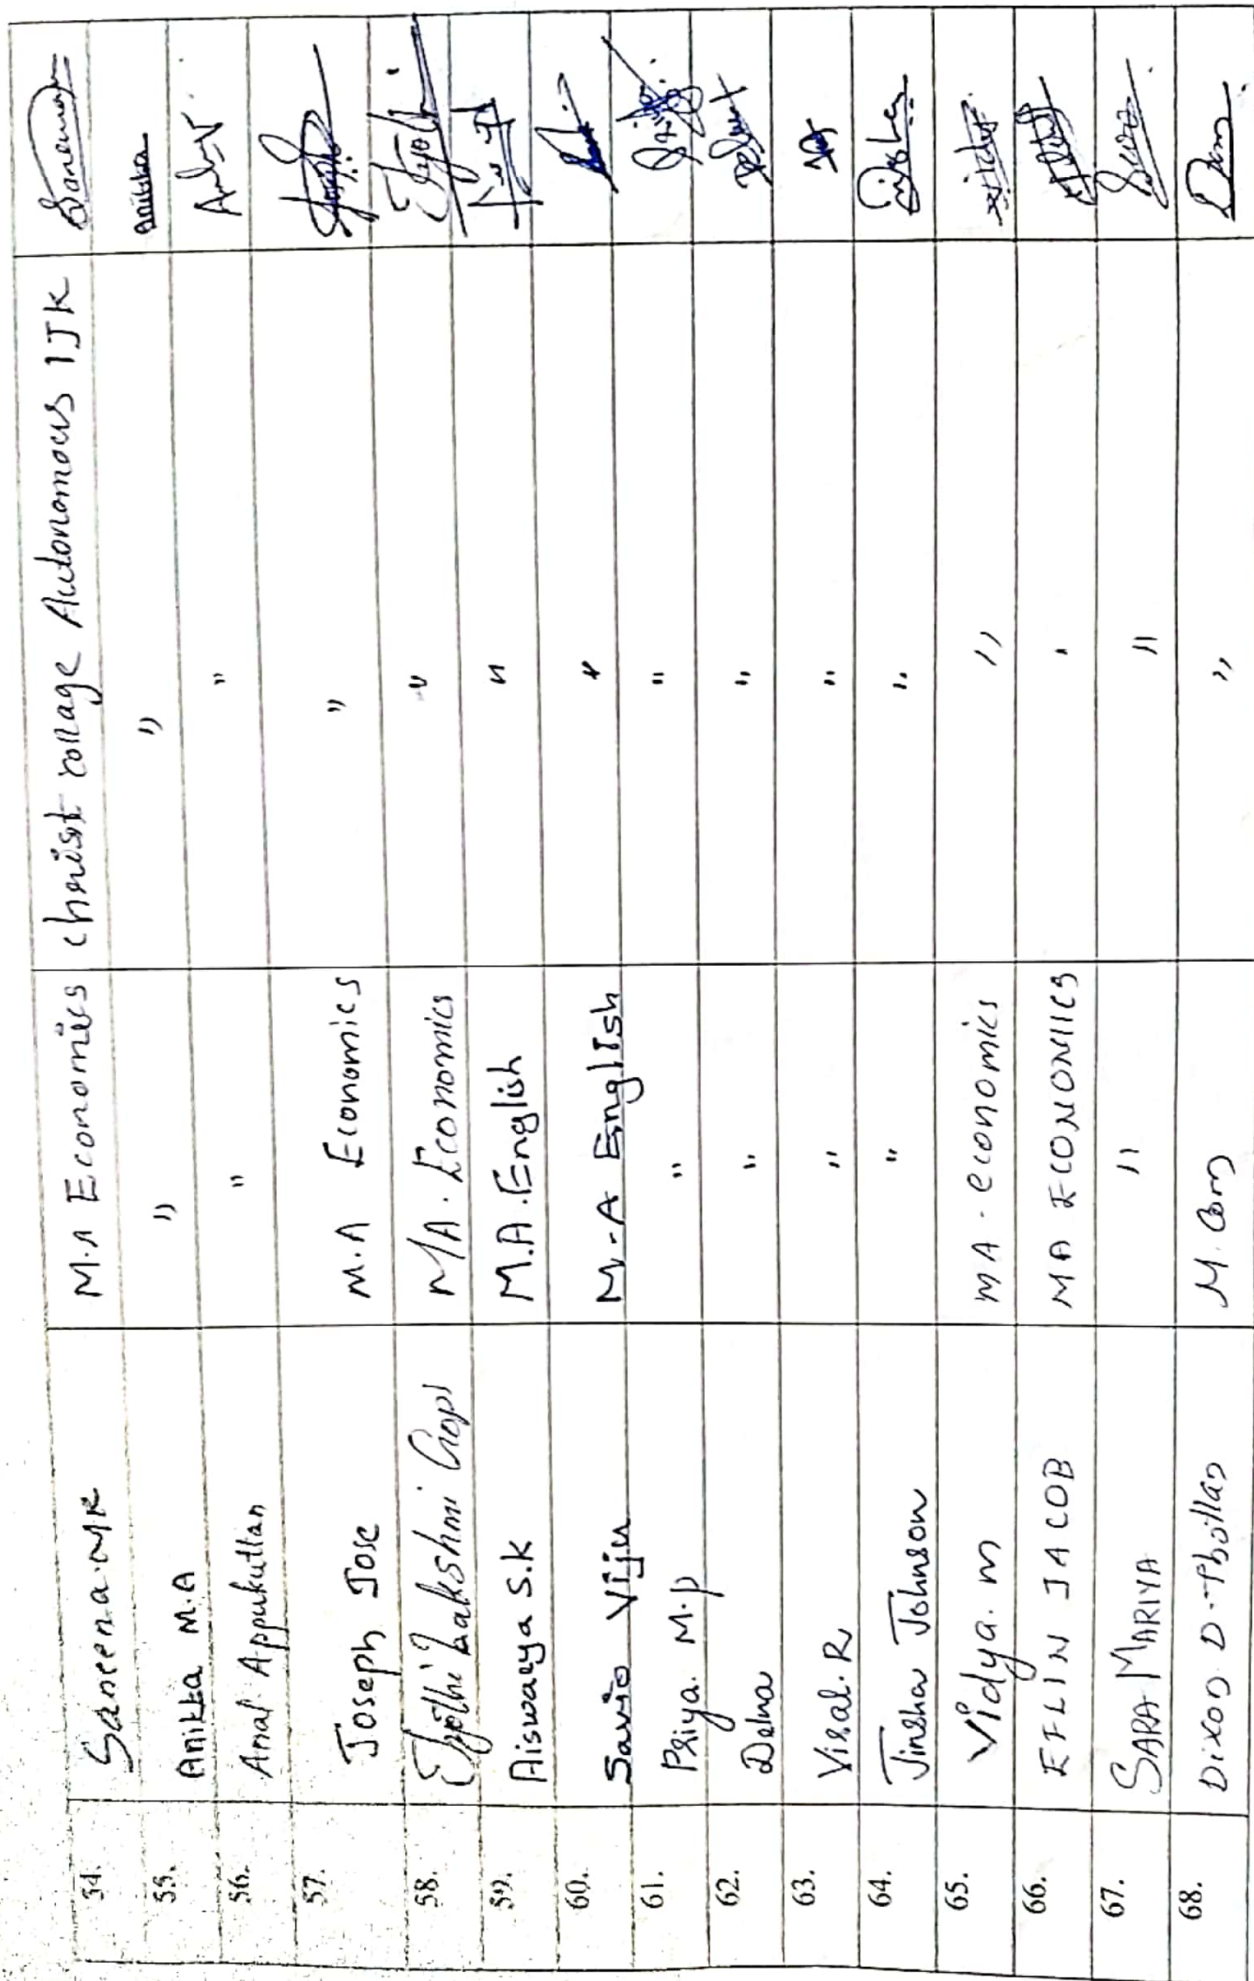 54. Sareena MR M.A Economics christ collage Autonomous IJK
55. Anitta M.A " " Anitta
56. Amal Appukuttan " "
57. Joseph Jose M.A Economics "
58. Jyothi Lakshmi Gopi MA. Economics " Jyothi
59. Aiswarya S.K M.A. English "
60. Savio Viju M.A English "
61. Priya. M.P " "
62. Delna " "
63. Visal. R " "
64. Jinsha Johnson " "
65. Vidya. m MA. economics "
66. EFLIN JACOB MA ECONOMICS "
67. SARA MARIYA " "
68. M. Com "